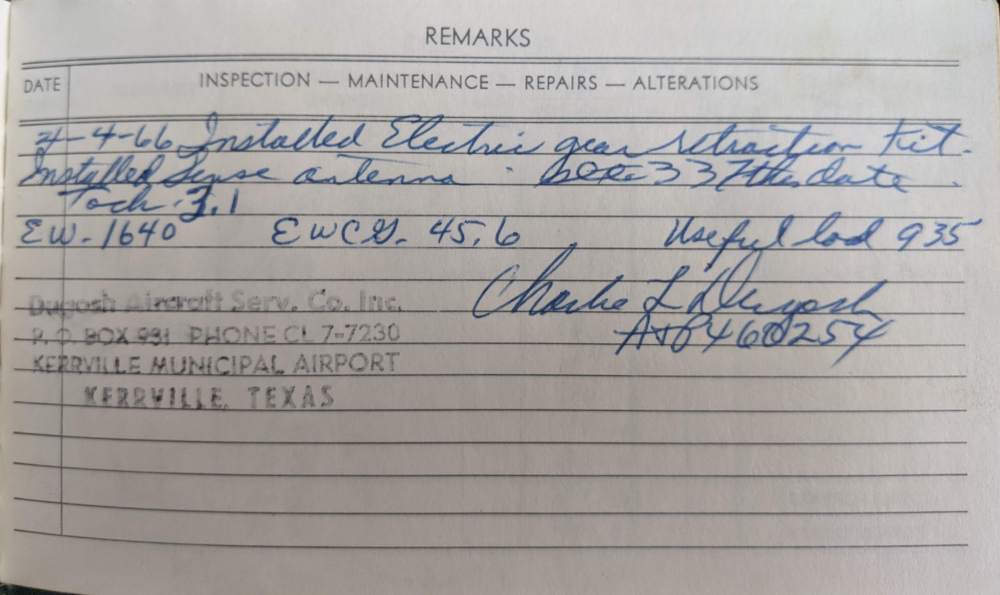 REMARKS
DATE INSPECTION — MAINTENANCE — REPAIRS — ALTERATIONS
4-4-66 Installed Electric gear retraction Kit.
Installed Sense antenna. See 337 this date.
Tach. 3.1
EW. 1640 EWCG. 45.6 Useful load 935
Charlie L Dugosh
A&P 460254
Dugosh Aircraft Serv. Co. Inc.
P. O. BOX 931 PHONE CL 7-7230
KERRVILLE MUNICIPAL AIRPORT
KERRVILLE, TEXAS